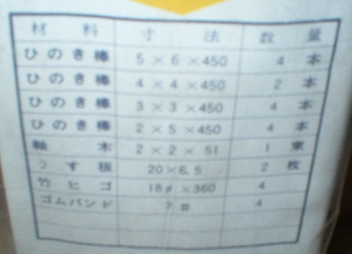 材料 寸法 数量
ひのき棒 5×6×450 4本
ひのき棒 4×4×450 2本
ひのき棒 3×3×450 4本
ひのき棒 2×5×450 4本
軸木 2×2×51 1束
うす板 20×6,5 2枚
竹ヒゴ 18#×360 4
ゴムバンド 7# 4